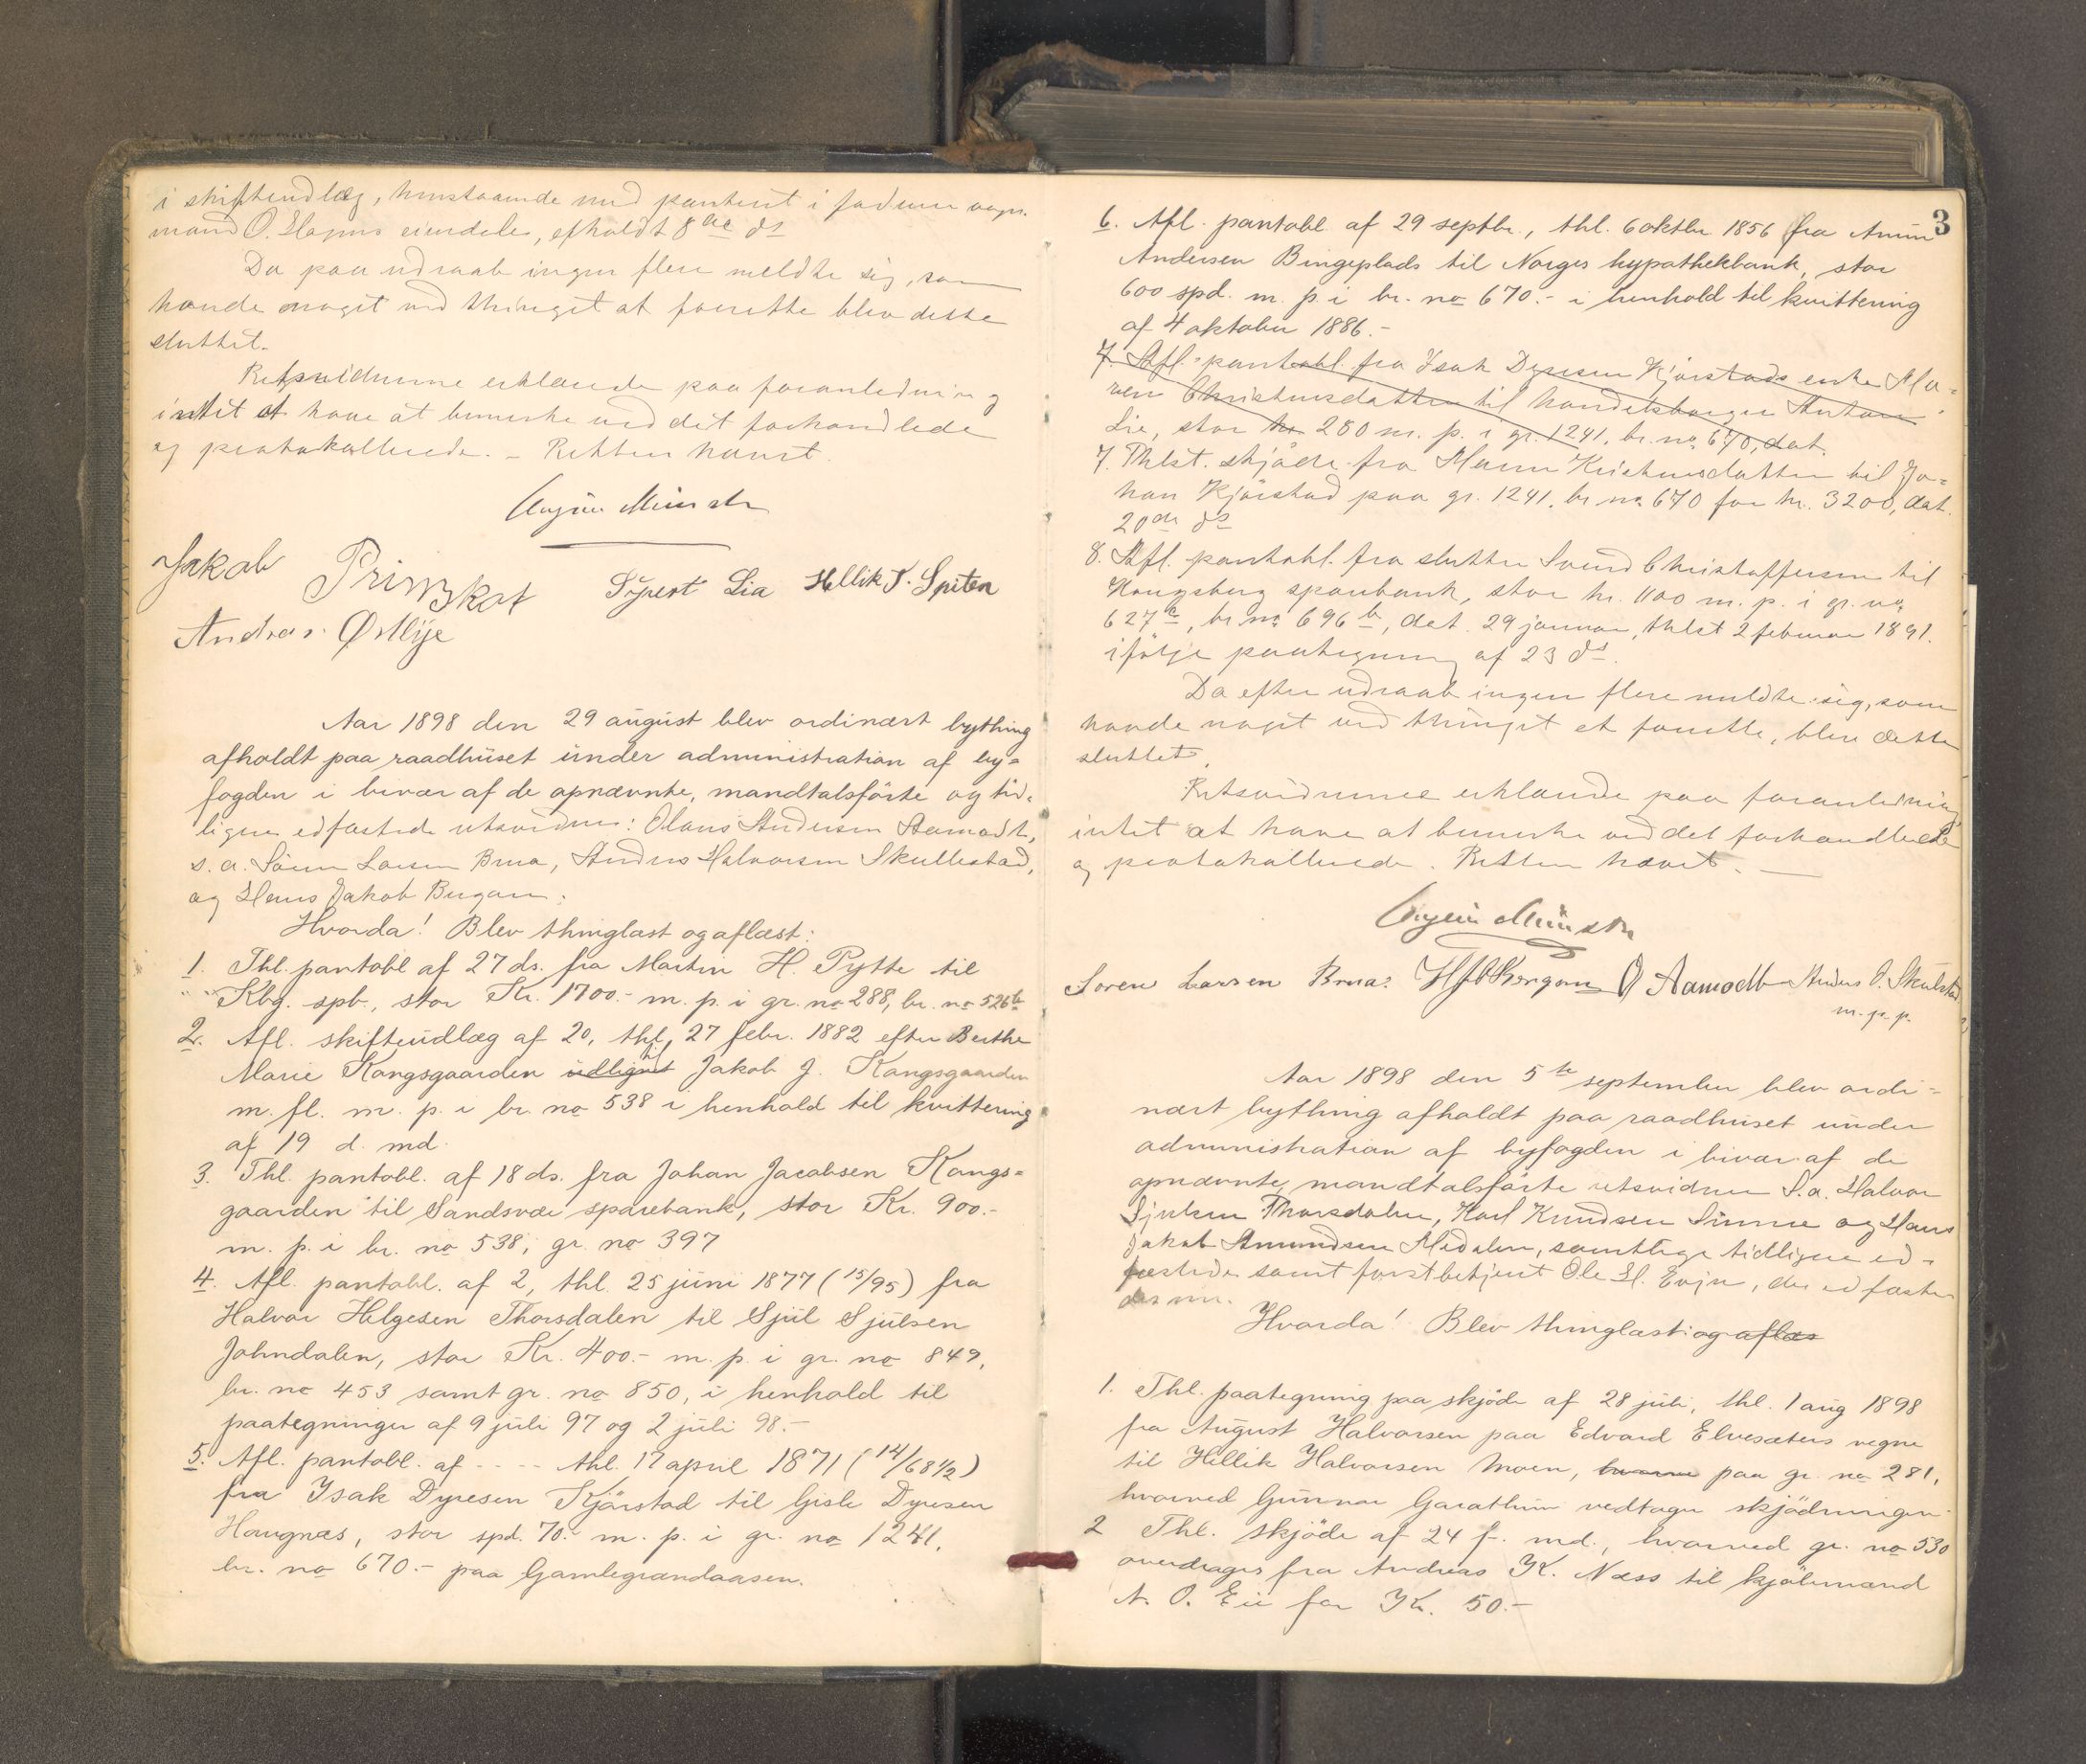 i skifteudlæg, henstaaende med panteret i
mand O. Hagens eiendele, afholdt 8de ds
Da paa udraab ingen flere meldte sig, som
havde noget ved thinget at forrette blev dette
sluttet.
Retsvidnerne erklærede paa foranledning
intet at have at bemerke ved det forhandlede
og protokollerede. – Retten hævet.
Münster
Jakob Prinskot Sjvert Lia Hellik T. Spiten
Andreas Ørstlije
Aar 1898 den 29 august blev ordinært bything
afholdt paa raadhuset under administration af by=
fogden i bivær af de opnævnte, mandtalsförte og tid=
ligere edfæstede retsvidner: Olaus Andersen Aamodt,
s. a. Sören Larsen Brua, Anders Halvorsen Skullestad,
og Hans Jakob Bergan.
Hvorda! Blev thinglæst og aflæst:
1. Thl. pantobl af 27 ds. fra Martin H. Pytte til
Kbg. spb., stor Kr. 1700.- m. p. i gr. no 288, br. no 526b
2. Afl. skifteudlæg af 20, thl. 27 febr. 1882 efter Berthe
Marie Kongsgaarden udlignet til Jakob J. Kongsgaarden
m. fl. m. p. i br. no 538 i henhold til kvittering
af 19 d. md.
3. Thl. pantobl. af 18 ds. fra Johan Jacobsen Kongs=
gaarden til Sandsvær sparebank, stor Kr. 900.-
m. p. i br. no 538, gr. no 397
4. Afl. pantobl. af 2, thl. 25 juni 1877 (15/95) fra
Halvor Helgesen Thorsdalen til Sjul Sjulsen
Johndalen, stor Kr. 400.- m. p. i gr. no 849,
br. no 453 samt gr. no 850, i henhold til
paategninger af 9 juli 97 og 2 juli 98.-
5. Afl. pantobl. af - - - - thl. 17 april 1871 (14/68½)
fra Isak Dyresen Kjörstad til Gisle Dyresen
Haugnæs, stor spd. 70.- m. p. i gr. no 1241,
br. no 670.- paa Gamlegrændaasen.
3
6. Afl. pantobl. af 29 septbr., thl. 6 oktbr 1856 fra
Andersen Bingeplads til Norges hypothekbank, stor
600 spd. m. p. i br. no 670.- i henhold til kvittering
af 4 oktober 1886.-
7. Afl. pantobl. fra Isak Dyresen Kjörstads enke Ma=
ren Christensdatter til handelsborger Anton
Lie, stor kr. 280 m. p. i gr. 1241, br. no. 670, dat.
7. Thlst. skjöde fra Maren Kristensdatter til Jo=
han Kjörstad paa gr. 1241, br no. 670 for kr. 3200, dat.
20de ds
8. Afl. pantobl. fra slutter Svend Christoffersen til
Kongsberg sparebank, stor kr. 1100 m. p. i gr. no.
627a, br. no. 696b, dat. 29 januar, thlst 2 februar 1891.
ifölge paategning af 23 ds.
Da efter udraab ingen flere meldte sig, som
havde noget ved thinget at forrette, blev dette
sluttet.
Retsvidnerne erklærede paa foranledning
intet at have at bemerke ved det forhandlede
og protokollerede. Retten hævet. —
Münster
Soren Larsen Brua. H J Bergan O Aamodt Anders O. Skulstad
m. p. p.
Aar 1898 den 5te september blev ordi=
nært bything afholdt paa raadhuset under
administration af byfogden i bivær af de
opnævnte, mandtalsförte retsvidner S. a. Halvor
Sjulsen Thorsdalen, Karl Knudsen Sinne og Hans
Jakob Amundsen Medalen, samtlige tidligere ed=
fæstede samt forstbetjent Ole H. Evju, der edfæste=
des nu.
Hvorda! Blev thinglæst og aflæs
1. Thl. paategning paa skjöde af 28 juli, thl. 1 aug 1898
fra August Halvorsen paa Edvard Elvesæters vegne
til Hellik Halvorsen Moen, hvorve paa gr. no 281,
hvorved Gunnar Garathun vedtager skjödningen.
2 Thl. skjöde af 24 f. md., hvorved gr. no 530
overdrages fra Andreas K. Næss til kjöbmand
A. O. Eie for Kr. 50.-